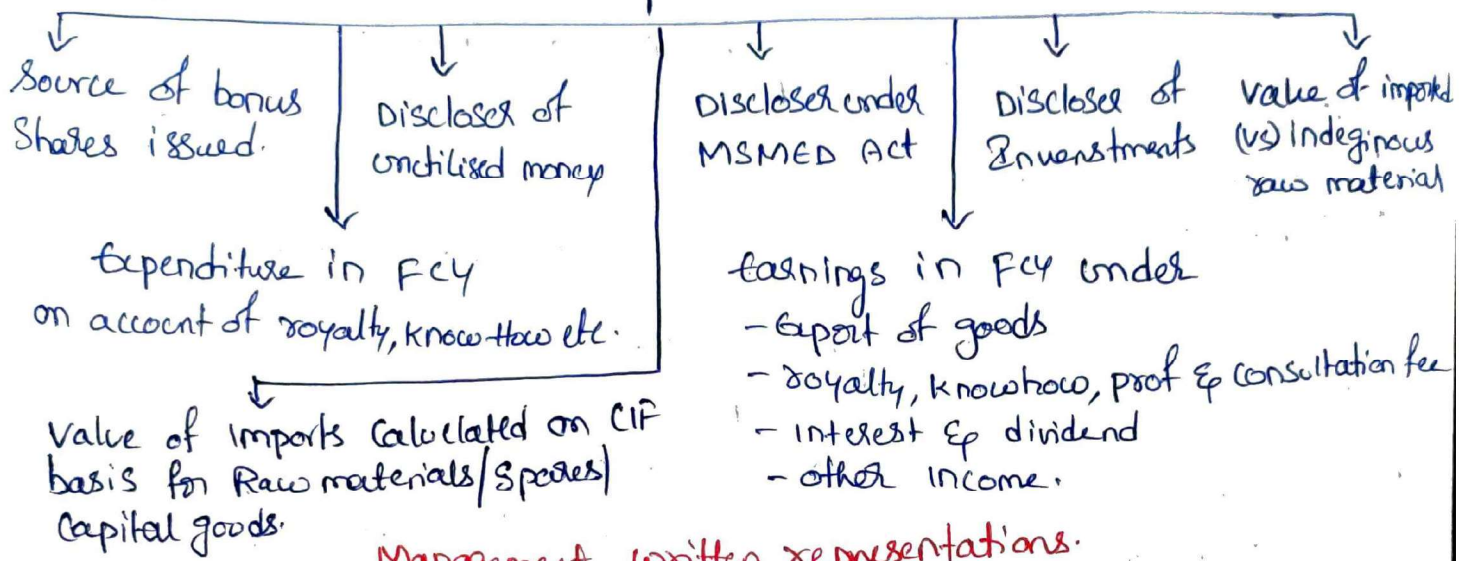 Source of bonus
Shares issued.
Discloser of
unutilised money
Discloser under
MSMED Act
Discloser of
Invenstments
Value of imported
(vs) Indeginous
raw material
Expenditure in FCY
on account of royalty, know-How etc.
Earnings in FCY under
- Export of goods
- royalty, knowhow, prof & consultation fee
- Interest & dividend
- other income.
Value of imports Calculated on CIF
basis for Raw materials/Spares/
Capital goods.
Management written representations.